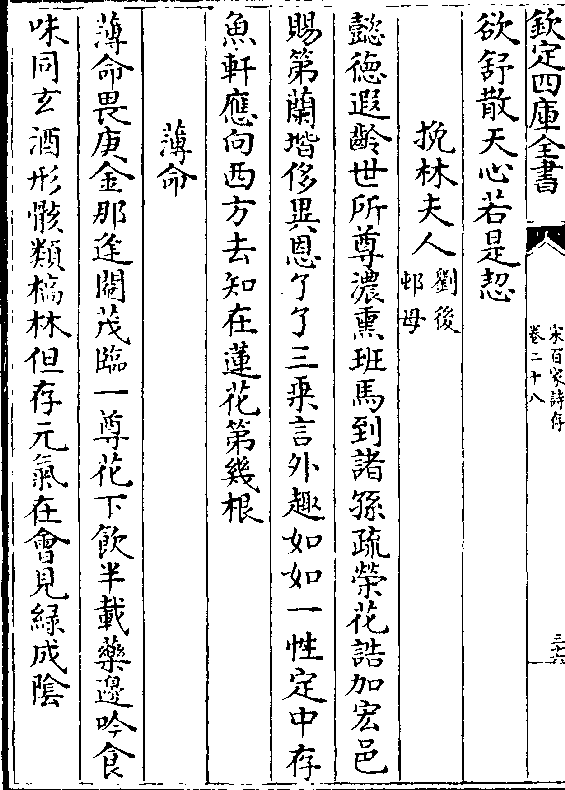 欽定四庫全書
宋百家詩存
卷二十八
三十六
欲舒散天心若是恝
挽林夫人
劉後
邨母
懿德遐齡世所尊濃熏班馬到諸孫疏榮花誥加宏邑
賜第蘭堦侈異恩了了三乘言外趣如如一性定中存
魚軒應向西方去知在蓮花第幾根
薄命
薄命畏庚金那逢閹茂臨一尊花下飲半載藥邊吟食
味同玄酒形骸類槁林但存元氣在會見緑成陰